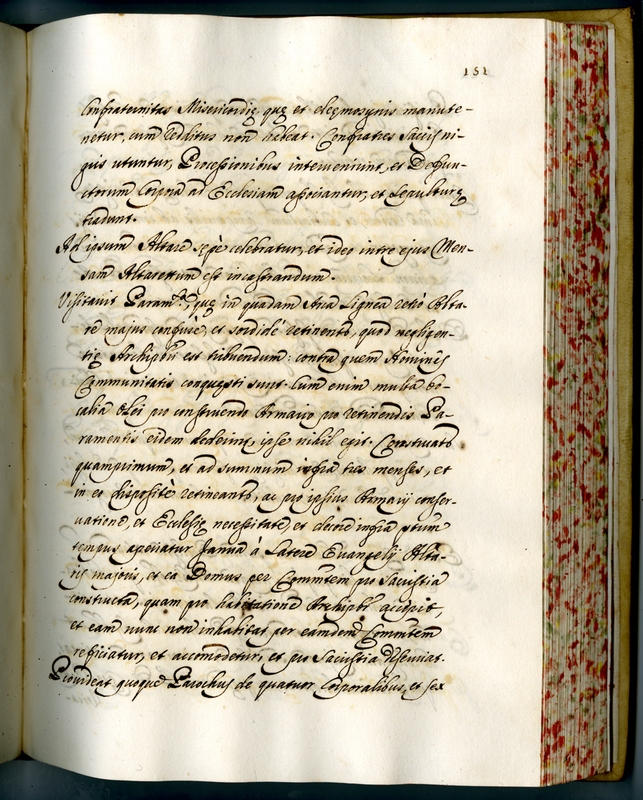 151
Confraternitas Misericordię, quę et eleęmosynis manute-
netur, cum redditus non habeat. Confratres Saccis ni-
gris utuntur, Processionibus interveniunt, et Defun-
ctorum Corpora ad Ecclesiam associantur, et Sepulturę
tradunt.
Ad ipsum Altare sępè celebratur, et ideo intra ejus Men-
sam Altarettum est incastrandum.
Visitavit Param.ta, quę in quadam Arca Lignea retrò Alta-
re majus confusè, et sordidè retinentr, quod negligen-
tię Archipbri est tribuendum: contra quem Homines
Communitatis conquesti sunt. Cum enim multa bo-
calia Olei pro construendo Armario pro retinendis Pa-
ramentis eidem dederint, ipse nihil egit. Construatr
quamprimum, et ad summum infra tres menses, et
in eo dispositè retineantr, ac pro ipsius Armarij conser-
vatione, et Ecclesię necessitate, et decore infra ptum
tempus aperiatur Janua à Latere Evangelij Alta-
ris majoris, et ea Domus per Commtem pro Sacristia
constructa, quam pro habitatione Archipbr accepit,
et eam nunc non inhabitat per eamdem Commtem
reficiatur, et accomodetur, et pro Sacristia inserviat.
Provideat quoque Parochus de quatuor Corporalibus, et sex